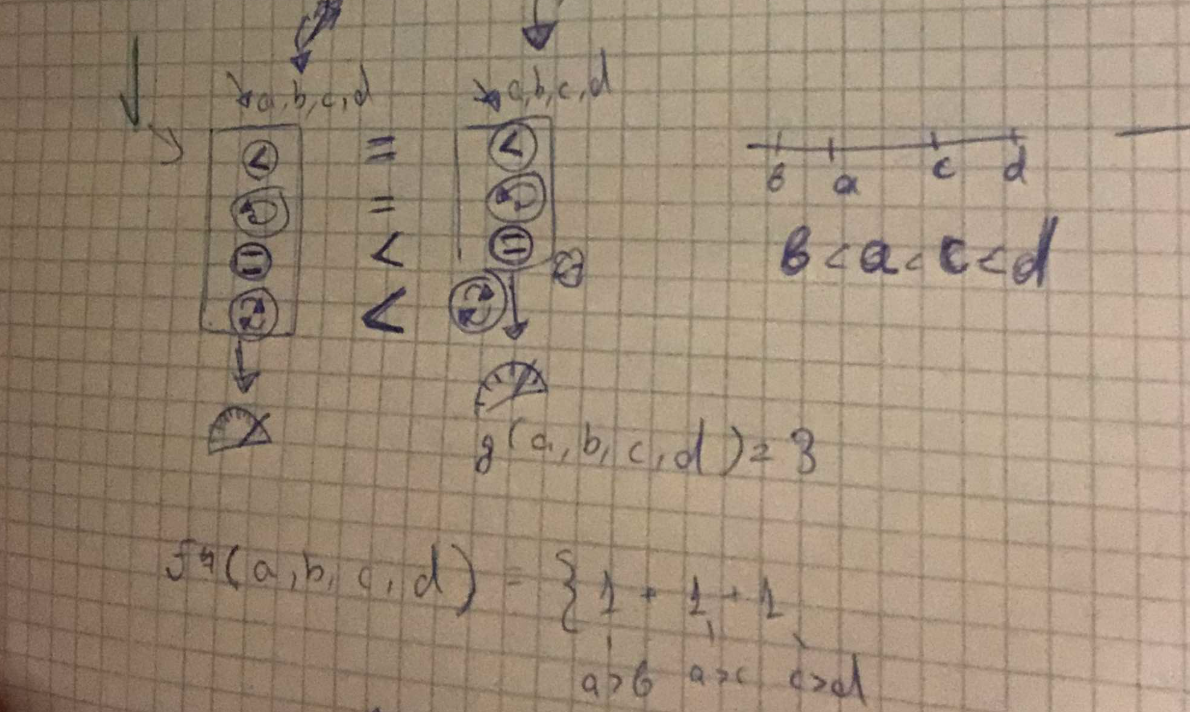 a,b,c,d a,b,c,d
< = <
=
= < =
<
b a c d
b < a < c < d
g(a,b,c,d) = 3
f4(a,b,c,d) = { 1 + 1 + 1
a>b a>c c>d